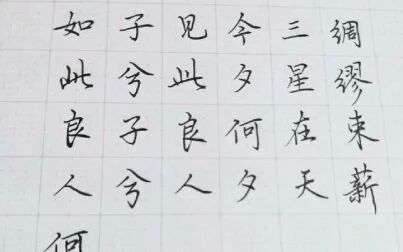 绸缪束薪
三星在天
今夕何夕
见此良人
子兮子兮
如此良人
何